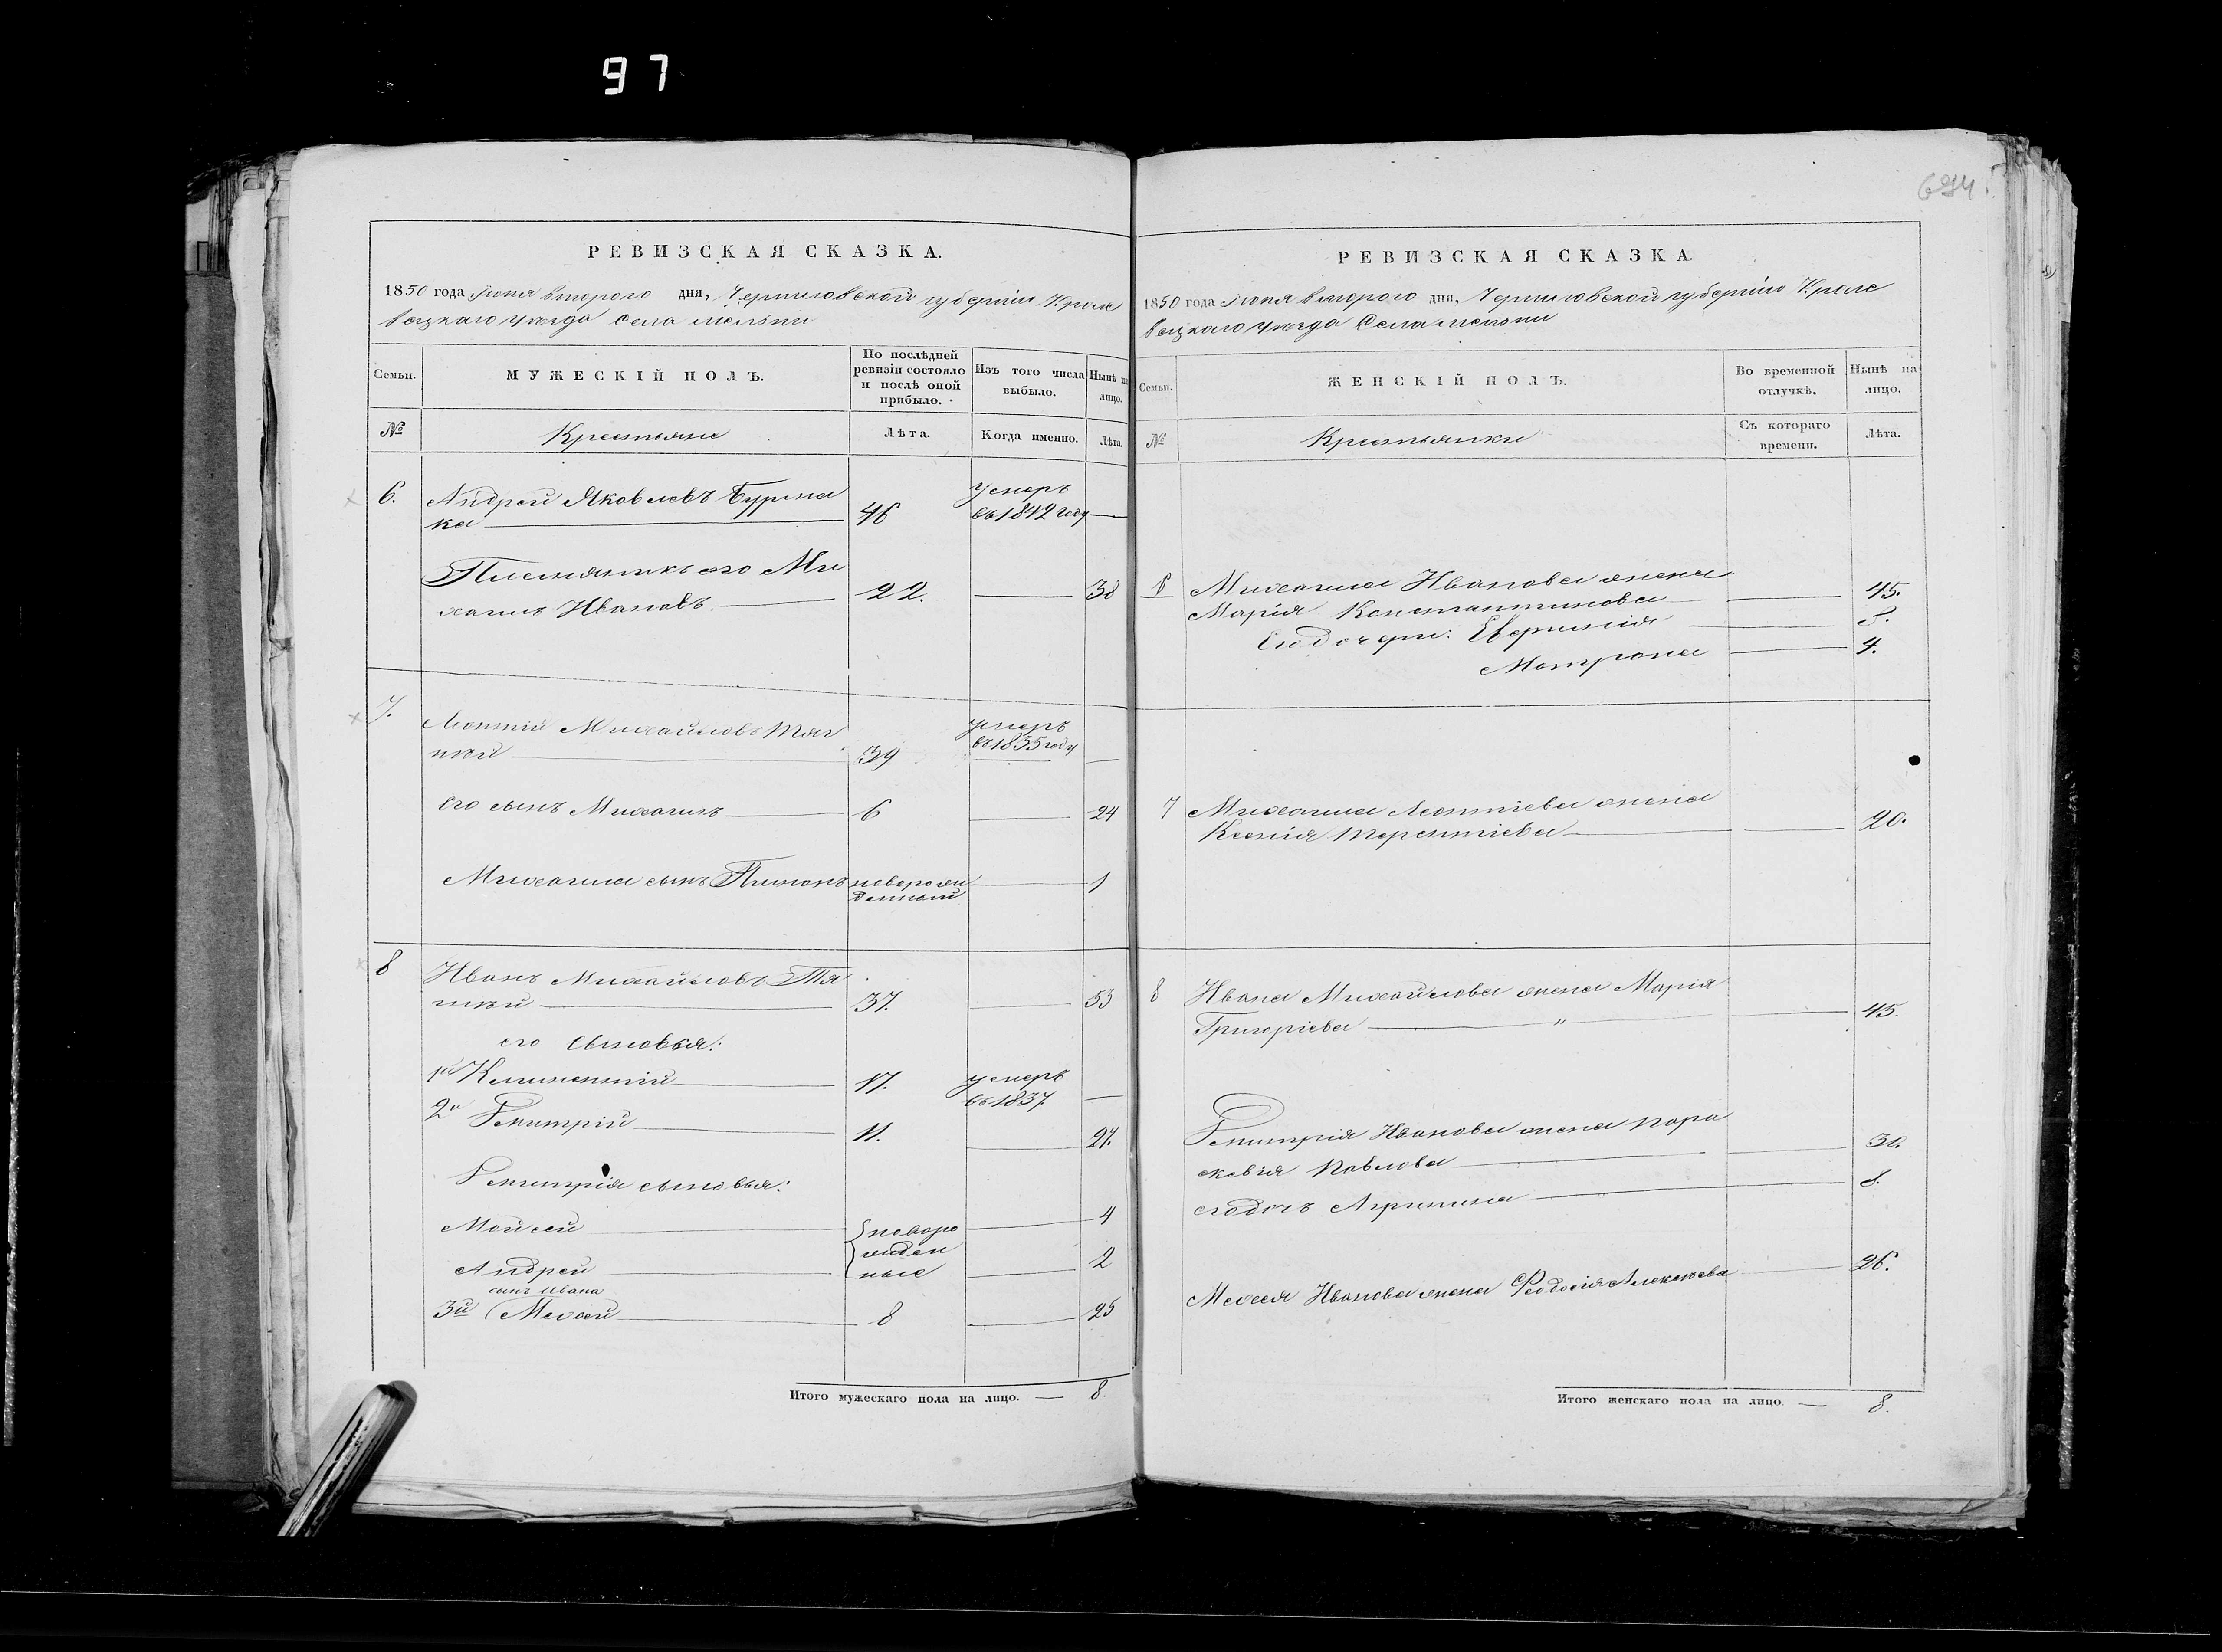 97
694
РЕВИЗСКАЯ СКАЗКА.
1850 года Июня второго дня, Черниговской губернiи Кроле
вецкаго уѣзда Села Мельни
Семьи. МУЖЕСКIЙ ПОЛЪ. По послѣдней ревизiи состояло и послѣ оной прибыло. Изъ того числа выбыло. Нынѣ на лицо.
№ Крестьяне Лѣта. Когда именно. Лѣта.
6. Андрей Яковлевъ Бурма
ка 46 умеръ въ 1842 году
Племяникъ его Ми
хаилъ Ивановъ 22. 38
7. Леонтiй Михайловъ Тяг
нiй 39 умеръ въ 1835 году
его сынъ Михаилъ 6 24
Михаила сынъ Пименъ новорож
денный 1
8 Иванъ Михайловъ Тя
гнiй 37. 53
его сыновья:
1й Климентiй 17. умеръ въ 1837
2й Дмитрiй 11. 27.
Дмитрiя сыновья:
Мойсей новоро 4
жден
Андрей ные 2
сынъ Ивана
3й Мойсей 8 25
Итого мужескаго пола на лицо. — 8.
РЕВИЗСКАЯ СКАЗКА.
1850 года Июня второго дня, Черниговской губернiи Кроле
вецкаго уѣзда Села Мельни
Семьи. ЖЕНСКIЙ ПОЛЪ. Во временной отлучкѣ. Нынѣ на лицо.
№ Крестьянки Съ котораго времени. Лѣта.
6 Михаила Иванова жена
Марiя Константинова 45.
Ея дочери: Евфимiя 8.
Матрона 4.
7 Михаила Леонтiева жена
Ксенiя Терентiева 20.
8 Ивана Михайлова жена Марiя
Григорiева " 45.
Дмитрiя Иванова жена Пара
скевiя Павлова 30.
ея дочь Агрипина 8.
Мойсея Иванова жена Феодосiя Алексѣева 26.
Итого женскаго пола на лицо. — 8.